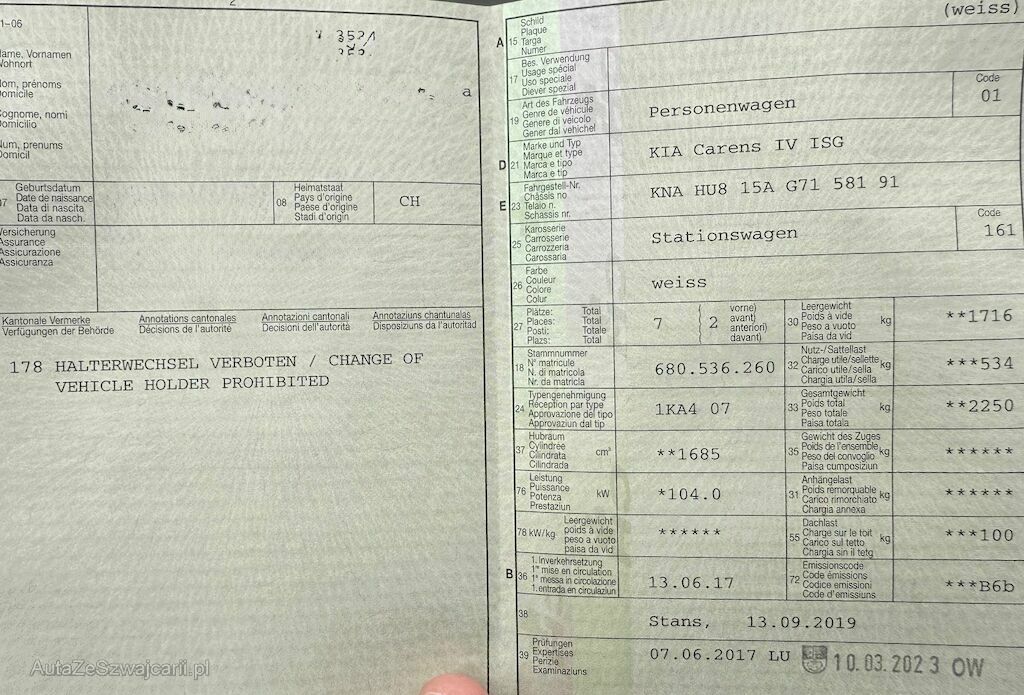 2
1–06
ame, Vornamen
Wohnort
Nom, prénoms
Domicile
Cognome, nomi
Domicilio
Num, prenums
Domicil
a
07
Geburtsdatum
Date de naissance
Data di nascita
Data da nasch.
08
Heimatstaat
Pays d'origine
Paese d'origine
Stadi d'origin
CH
Versicherung
Assurance
Assicurazione
Assicuranza
Kantonale Vermerke
Verfügungen der Behörde
Annotations cantonales
Décisions de l'autorité
Annotazioni cantonali
Decisioni dell'autorità
Annotaziuns chantunalas
Disposiziuns da l'autoritad
178 HALTERWECHSEL VERBOTEN / CHANGE OF
VEHICLE HOLDER PROHIBITED
AutaZeSzwajcarii.pl
(weiss)
A 15
Schild
Plaque
Targa
Numer
17
Bes. Verwendung
Usage spécial
Uso speciale
Diever spezial
19
Art des Fahrzeugs
Genre de véhicule
Genere di veicolo
Gener dal vehichel
Personenwagen
Code
01
D 21
Marke und Typ
Marque et type
Marca e tipo
Marca e tip
KIA Carens IV ISG
E 23
Fahrgestell-Nr.
Châssis no
Telaio n.
Schassis nr.
KNA HU8 15A G71 581 91
25
Karosserie
Carrosserie
Carrozzeria
Carossaria
Stationswagen
Code
161
26
Farbe
Couleur
Colore
Colur
weiss
27
Plätze: Total
Places: Total
Posti: Totale
Plazs: Total
7 { 2
vorne)
avant)
anteriori)
davant)
30
Leergewicht
Poids à vide
Peso a vuoto
Paisa da vid
kg
**1716
18
Stammnummer
N° matricule
N. di matricola
Nr. da matricla
680.536.260
32
Nutz-/Sattellast
Charge utile/sellette
Carico utile/sella
Chargia utila/sella
kg
***534
24
Typengenehmigung
Réception par type
Approvazione del tipo
Approvaziun dal tip
1KA4 07
33
Gesamtgewicht
Poids total
Peso totale
Paisa totala
kg
**2250
37
Hubraum
Cylindrée
Cilindrata
Cilindrada
cm³
**1685
35
Gewicht des Zuges
Poids de l'ensemble
Peso del convoglio
Paisa cumposiziun
kg
******
76
Leistung
Puissance
Potenza
Prestaziun
kW
*104.0
31
Anhängelast
Poids remorquable
Carico rimorchiato
Chargia annexa
kg
******
78 kW/kg
Leergewicht
poids à vide
peso a vuoto
paisa da vid
******
55
Dachlast
Charge sur le toit
Carico sul tetto
Chargia sin il tetg
kg
***100
B 36
1. Inverkehrsetzung
1re mise en circulation
1a messa in circolazione
1. entrada en circulaziun
13.06.17
72
Emissionscode
Code émissions
Codice emissioni
Code d'emissiuns
***B6b
38
Stans, 13.09.2019
39
Prüfungen
Expertises
Perizie
Examinaziuns
07.06.2017 LU 10.03.2023 OW